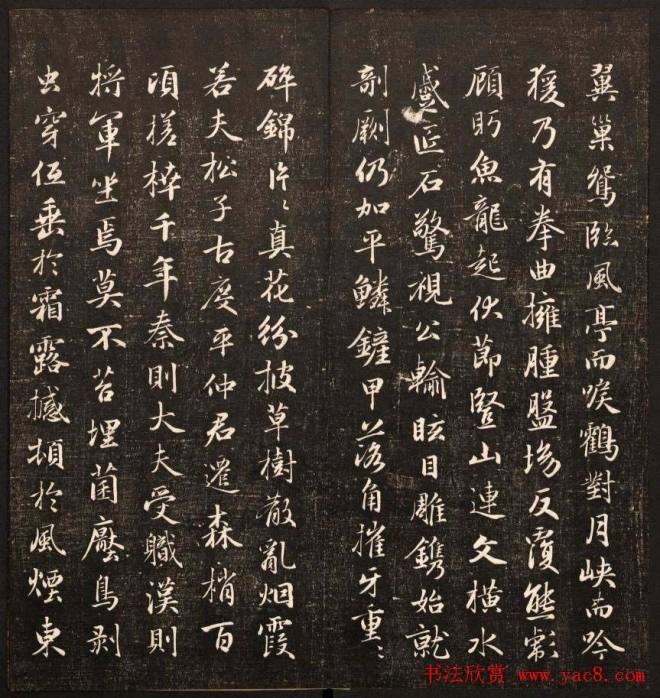 翼巢鴛臨風亭而唳鶴對月峽而吟
猨乃有拳曲擁腫盤坳反覆熊彪
顧盻魚龍起伏節豎山連文橫水
蹙匠石驚視公輸眩目雕鐫始就
剞劂仍加平鱗鏟甲落角摧牙重〻
碎錦片〻真花紛披草樹散亂烟霞
若夫松子古度平仲君遷森梢百
頃槎枿千年秦則大夫受職漢則
将軍坐焉莫不苔埋菌壓鳥剥
虫穿低垂於霜露撼頓於風煙東
书法欣赏 www.yac8.com